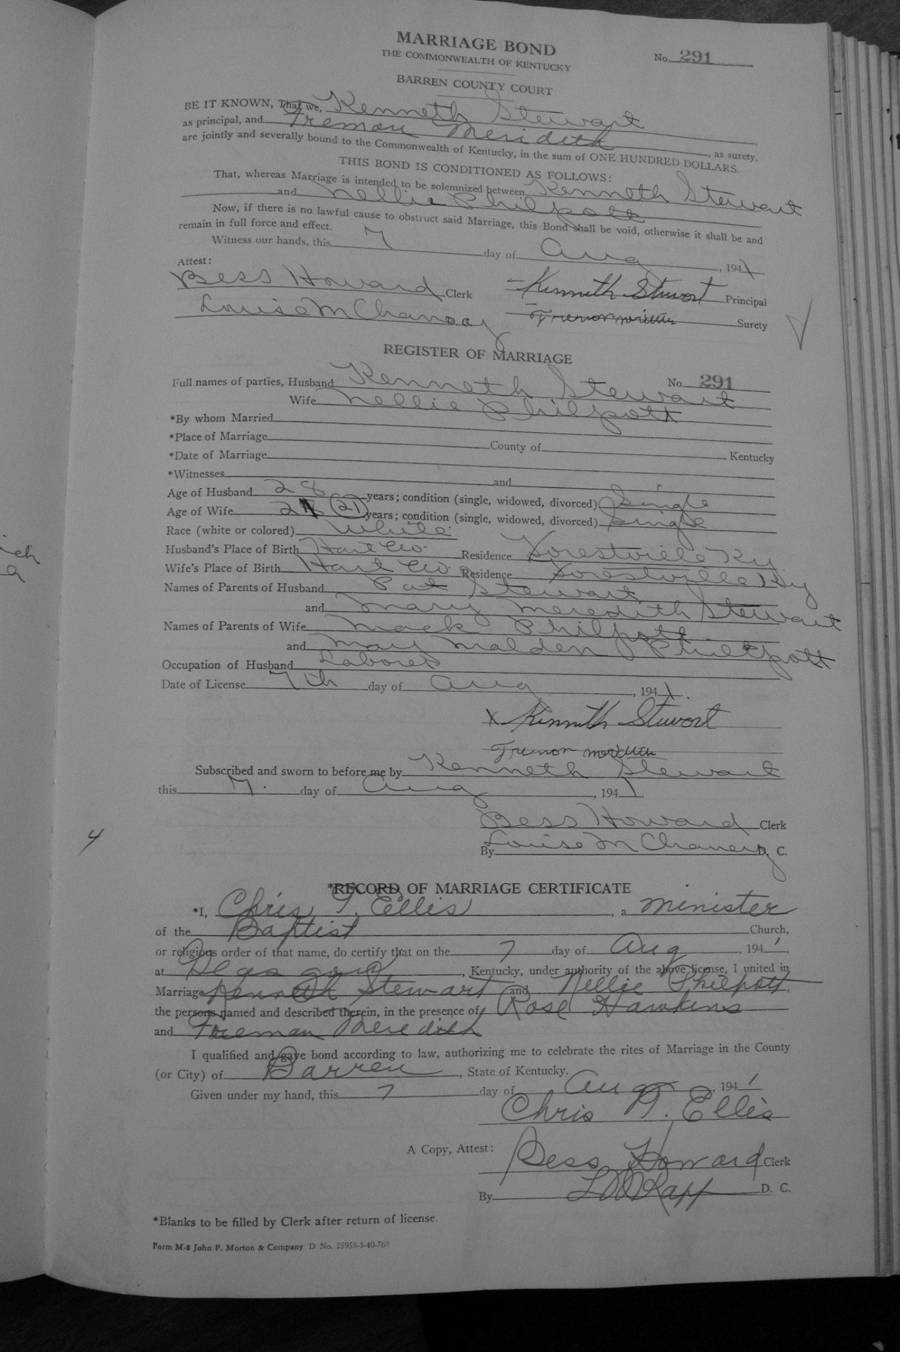 MARRIAGE BOND
THE COMMONWEALTH OF KENTUCKY
No. 291
BARREN COUNTY COURT
BE IT KNOWN, That we, Kenneth Stewart
as principal, and Freman Meridith, as surety,
are jointly and severally bound to the Commonwealth of Kentucky, in the sum of ONE HUNDRED DOLLARS.
THIS BOND IS CONDITIONED AS FOLLOWS:
That, whereas Marriage is intended to be solemnized between Kenneth Stewart
and Nellie Philpott
Now, if there is no lawful cause to obstruct said Marriage, this Bond shall be void, otherwise it shall be and
remain in full force and effect.
Witness our hands, this 7 day of Aug, 1941
Attest:
Bess Howard Clerk Kenneth Stewart Principal
Louise McChaney Surety
REGISTER OF MARRIAGE
Full names of parties, Husband Kenneth Stewart No. 291
Wife Nellie Philpott
*By whom Married
*Place of Marriage County of Kentucky
*Date of Marriage
*Witnesses and
Age of Husband 28 years; condition (single, widowed, divorced) Single
Age of Wife 21 (21) years; condition (single, widowed, divorced) Single
Race (white or colored) White
Husband's Place of Birth Hart Co. Residence Forestville Ky
Wife's Place of Birth Hart Co Residence Forestville Ky
Names of Parents of Husband Pat Stewart
and Mary Meredith Stewart
Names of Parents of Wife Mack Philpott
and May Malden Philpott
Occupation of Husband Laborer
Date of License 7th day of Aug, 1941.
X Kenneth Stewart
Subscribed and sworn to before me by Kenneth Stewart
this 7. day of Aug, 1941
Bess Howard Clerk
By Louise McChaney D. C.
4
*RECORD OF MARRIAGE CERTIFICATE
*I, Chris T. Ellis, a minister
of the Baptist Church,
or religious order of that name, do certify that on the 7 day of Aug, 1941
at, Kentucky, under authority of the above license, I united in
Marriage Kenneth Stewart and Nellie Philpott
the persons named and described therein, in the presence of Rose Hawkins
and Freeman Meredith
I qualified and gave bond according to law, authorizing me to celebrate the rites of Marriage in the County
(or City) of Barren, State of Kentucky.
Given under my hand, this 7 day of Aug, 1941
Chris T. Ellis
A Copy, Attest: Bess Howard Clerk
By D. C.
*Blanks to be filled by Clerk after return of license.
Form M-8 John P. Morton & Company